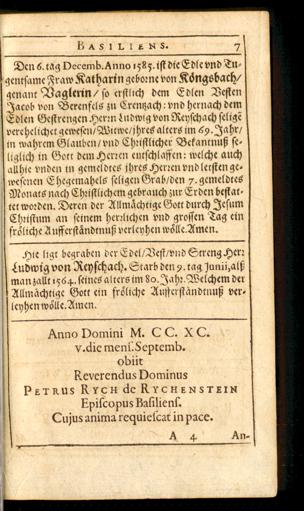 BASILIENS. 7
Den 6. tag Decemb. Anno 1585. ist die Edle vnd Tu-
gentsame Fraw Katharin geborne von Köngsbach/
genant Vaglerin/ so erstlich dem Edlen Vesten
Jacob von Berenfels zu Crentzach: vnd hernach dem
Edlen Gestrengen Herrn Ludwig von Reyschach seligē
verehelichet gewesen/Witwe/jhres alters im 69. Jahr/
in wahrem Glauben/ vnd Christlicher Bekantnuß se-
liglich in Gott dem Herren entschlaffen: welche auch
allhie vnden in gemeldtes jhres Herren vnd letsten ge-
wesenen Ehegemahels seligen Grab/den 7. gemeldtes
Monats nach Christlichem gebrauch zur Erden bestat-
tet worden. Deren der Allmächtige Gott durch Jesum
Christum an seinem herrlichen vnd grossen Tag ein
fröliche Aufferständnuß verleyhen wölle. Amen.
Hie ligt begraben der Edel/Vest/vnd Streng Herr
Ludwig von Reyschach. Starb den 9. tag Junii, alß
man zallt 1564. seines alters im 80. Jahr. Welchem der
Allmächtige Gott ein fröliche Aufferständnuß ver-
leyhen wölle. Amen.
Anno Domini M. CC. XC.
v. die mens. Septemb.
obiit
Reverendus Dominus
PETRUS RYCH de RYCHENSTEIN
Episcopus Basiliens.
Cujus anima requiescat in pace.
A 4 An-